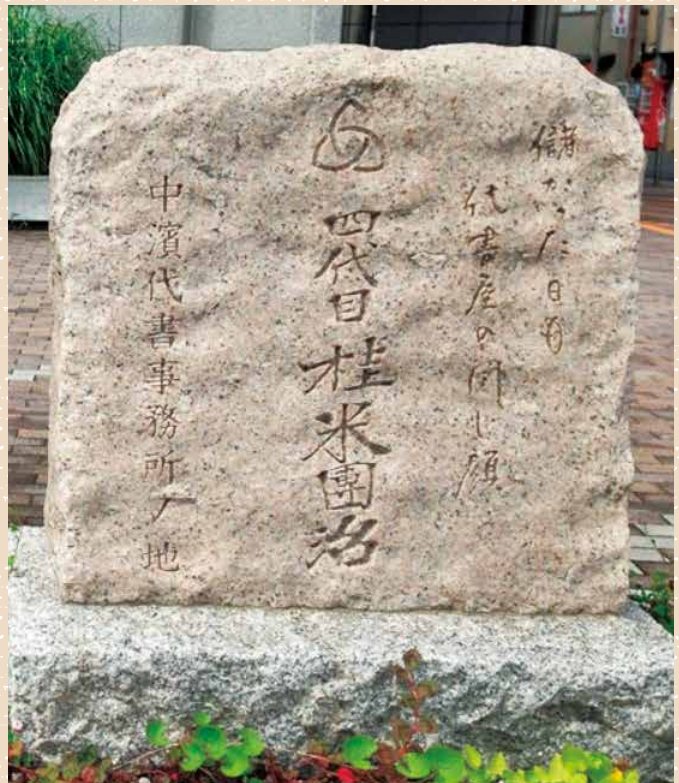 儲かった日も
代書屋の同じ顔
四代目 桂米團治
中濱代書事務所ノ地